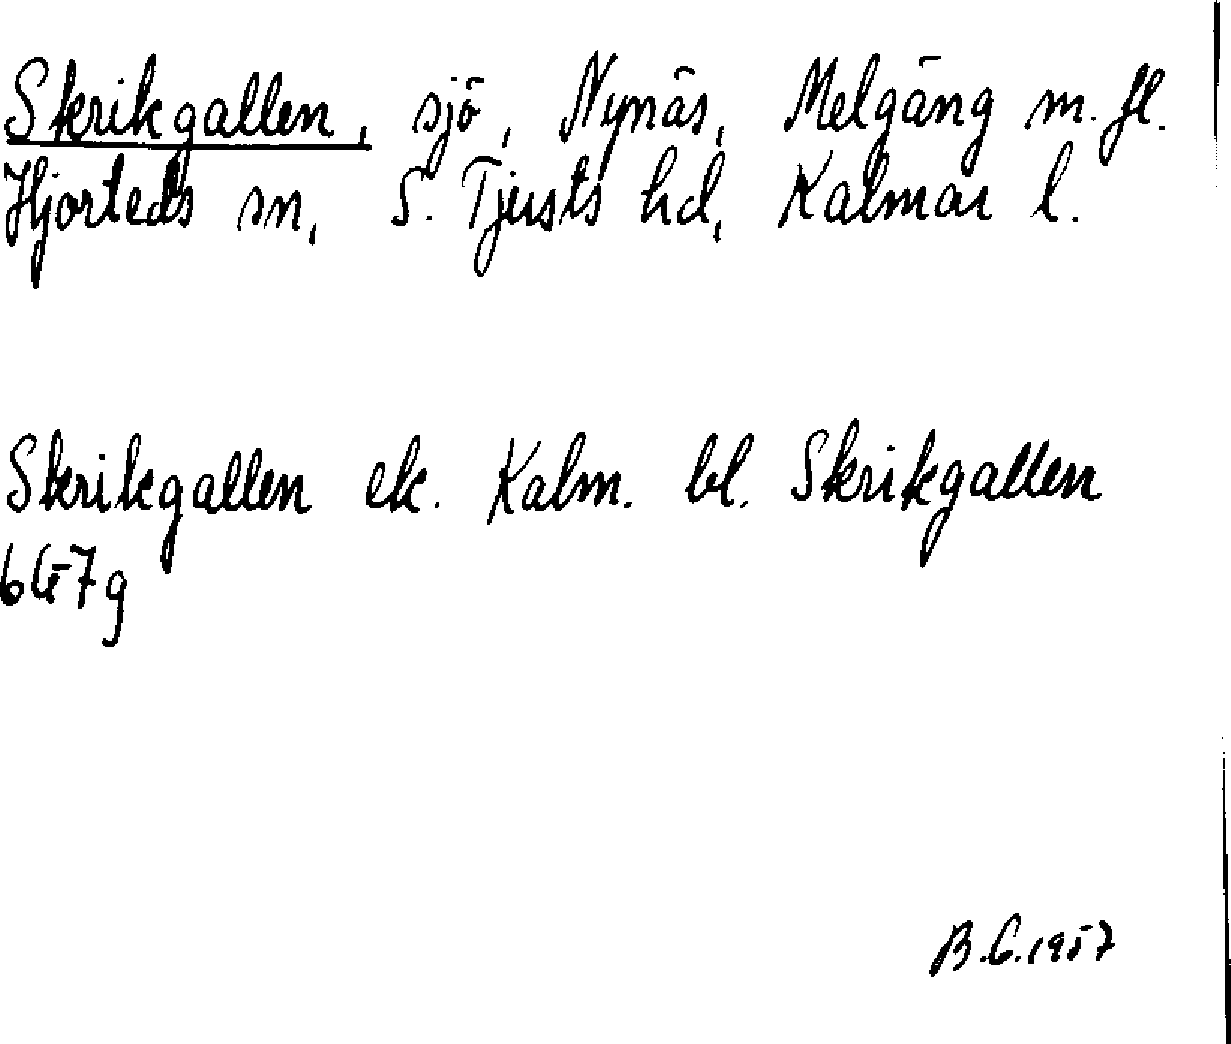 Skrikgallen, sjö, Nynäs, Melgäng m. fl.
Hjorteds sn, S. Tjusts hd, Kalmar l.
Skrikgallen ek. Kalm. bl. Skrikgallen
6G7g
B.G.1957